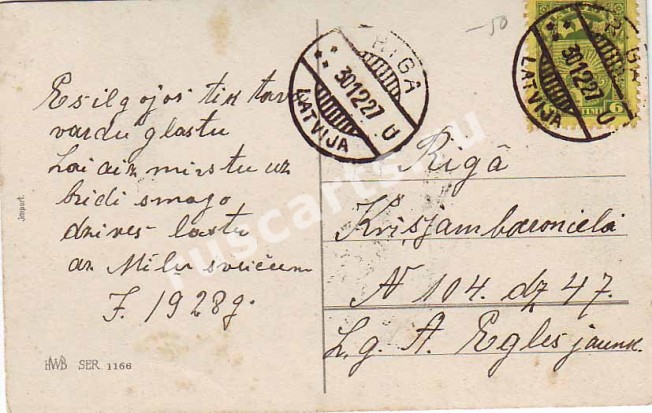 Es ilgojos tik tavu
vardu glastu
Lai aizmirstu uz
bridi smago
dzives lastu
ar Mīļu sveicienu
J. 1928 g.
Import.
HWB SER. 1166
-50
RIGA
301227 U
LATVIJA
RIGA
301227 U
LATVIJA
6
Rigā
Krisjam baroniela
N 104. dz 47.
L. g. A. Egles jaunk.
ruscarts.ru